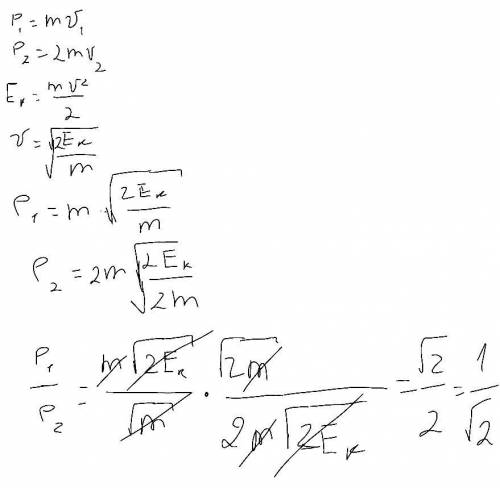 P₁ = mv₁
P₂ = 2mv₂
Eₖ = mv²/2
v = √(2Eₖ/m)
P₁ = m · √(2Eₖ/m)
P₂ = 2m √(2Eₖ/2m)
P₁/P₂ = m√(2Eₖ)/√m · √(2m)/(2m√(2Eₖ)) = √2/2 = 1/√2